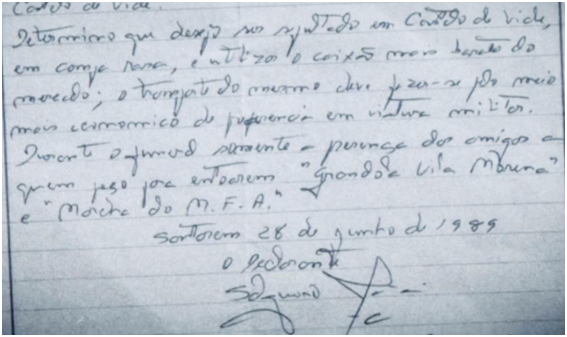 Castelo de Vide.
Determino que desejo ser sepultado em Castelo de Vide,
em campa rasa, e utilizar o caixão mais barato do
mercado; o transporte do mesmo deve fazer-se pelo meio
mais económico de preferência em viatura militar.
Durante o funeral somente a presença dos amigos a
quem peço para entoarem "Grândola Vila Morena"
e "Marcha do M.F.A."
Santarém 28 de Junho de 1989
O Declarante